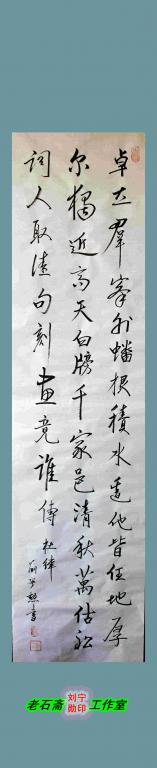 卓立羣峯外蟠根積水邊他皆任地厚
尔獨近高天白牓千家邑清秋萬估船
詞人取佳句刻畫竟誰傳 杜律
老石斋 工作室